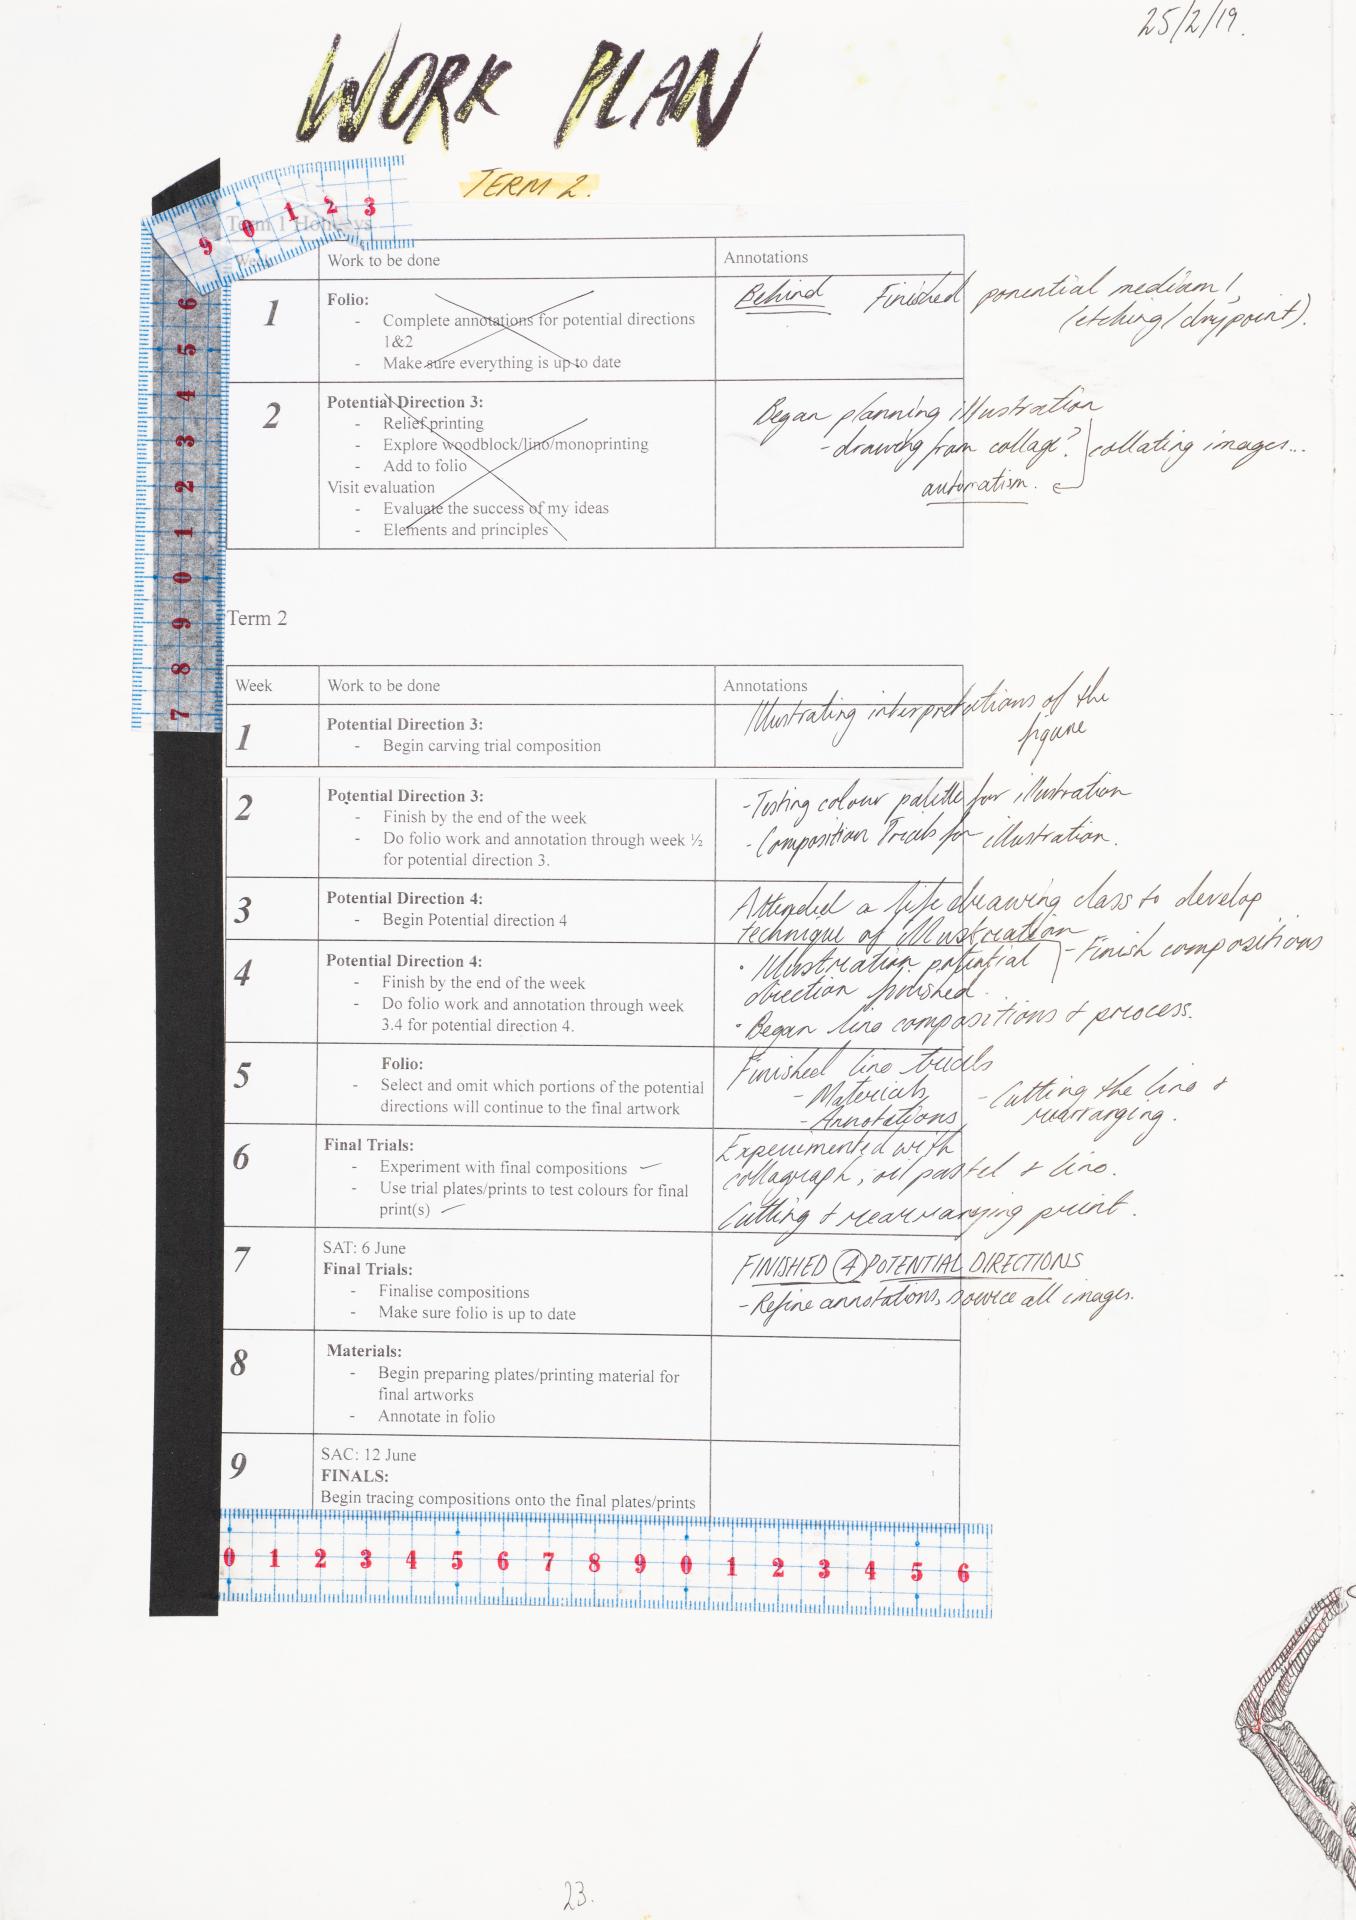 25/2/19.
WORK PLAN
TERM 2.
Term 1 Holidays
9 0 1 2 3
Week Work to be done Annotations
1 Folio:
- Complete annotations for potential directions
1&2
- Make sure everything is up to date
Behind Finished potential medium 1
(etching/drypoint).
2 Potential Direction 3:
- Relief printing
- Explore woodblock/lino/monoprinting
- Add to folio
Visit evaluation
- Evaluate the success of my ideas
- Elements and principles
Began planning illustration
- drawing from collage? collating images...
automatism.
6
5
4
3
2
1
0
9
8
7
Term 2
Week Work to be done Annotations
1 Potential Direction 3:
- Begin carving trial composition
Illustrating interpretations of the
figure
2 Potential Direction 3:
- Finish by the end of the week
- Do folio work and annotation through week ½
for potential direction 3.
- Testing colour palette for illustration
- Composition Trials for illustration.
3 Potential Direction 4:
- Begin Potential direction 4
Attended a life drawing class to develop
technique of illustration
4 Potential Direction 4:
- Finish by the end of the week
- Do folio work and annotation through week
3.4 for potential direction 4.
• Illustration potential - Finish compositions
direction finished.
• Began lino compositions & process.
5 Folio:
- Select and omit which portions of the potential
directions will continue to the final artwork
Finished lino trials
- Materials - Cutting the lino &
- Annotations rearranging.
6 Final Trials:
- Experiment with final compositions
- Use trial plates/prints to test colours for final
print(s)
Experimented with
collagraph, oil pastel & lino.
Cutting & rearranging print.
7 SAT: 6 June
Final Trials:
- Finalise compositions
- Make sure folio is up to date
FINISHED 4 POTENTIAL DIRECTIONS
- Refine annotations, source all images.
8 Materials:
- Begin preparing plates/printing material for
final artworks
- Annotate in folio
9 SAC: 12 June
FINALS:
Begin tracing compositions onto the final plates/prints
0 1 2 3 4 5 6 7 8 9 0 1 2 3 4 5 6
23.